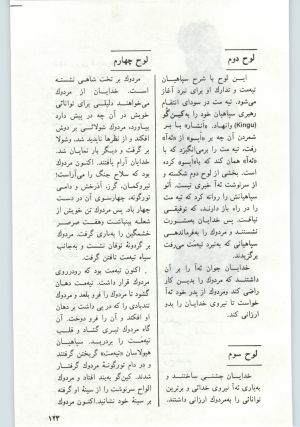 لوح دوم
این لوح با شرح سپاهیان
تیه‌مت و تدارك او برای نبرد آغاز
می‌شود. تیه مت در سودای انتقام
رهبری سپاهیان خود را به‌کین‌گو
(Kingu) وانهاد. «آنشار» با بر
شمردن آن چه بر «آپسو» از «ئه‌آ»
رفت، تیه مت را برمی‌انگیزد که با
«ئه‌آ» همان کند که با «اپسو» کرده
است. بخشی از لوح دوم شکسته و
از سرنوشت ئه‌آ خبری نیست. آنو
سرانجامش را روانه کرد که تیه مت
را در راه باز دارند، که توفیقی
نیافت. پس خدایان به‌مشورت
نشستند و مردوك را به‌فرماندهی
سپاهیانی که به‌نبرد تیه‌مت می‌رفت
برگزیدند.
خدایان جوان ئه‌آ را بر آن
داشتند که مردوك را بدین کار
راضی کند و مردوك از پدر خود ئه‌آ
خواست تا نیروی خدایان را بدو
ارزانی کند.
لوح سوم
خدایان جشنی ساختند و
به‌یاری ئه‌آ نیروی خدائی و برترین
توانائی را به‌مردوك ارزانی داشتند.
لوح چهارم
مردوك بر تخت شاهی نشسته
است. خدایان از مردوك
می‌خواهند دلیلی برای توانائی
خویش در آن چه در پیش دارد
بیاورد. مردوك شولائی بر دوش
افکند و از نظرها ناپدید شد، وشولا
بر گرفت و دیگر بار نمایان شد.
خدایان آرام یافتند. اکنون مردوك
بود که سلاح جنگ را می‌آراست؛
تیروکمان، گرز، آذرخش و دامی
تورگونه، چهارسوی آن در دست
چهار باد. پس مردوك تن خویش از
شعله بینباشت وهفت صرصر
خشمگین را به‌یاری گرفت. مردوك
بر گردونهٔ توفان نشست و به‌جانب
سپاه تیه‌مت تافتن گرفت.
اکنون تیه‌مت بود که رودرروی
مردوك قرار داشت. تیه‌مت دهان
گشود تا مردوك را فرو بلعد و مردوك
توفانی را که در پی داشت بر دهان
او افکند و آن را فرو دوخت. آن
گاه مردوك تیری گشاد و قلب
تیه‌مت را بردرید. سپاهیان
هیولاسان «تیه‌مت» گریختن گرفتند
و در دام تورگونهٔ مردوك گرفتار
شدند. کین‌گو به‌بند افتاد و مردوك
الواح سرنوشت را از سینهٔ او گرفت و
بر سینهٔ خود نشانید. اکنون مردوك
۱۲۳